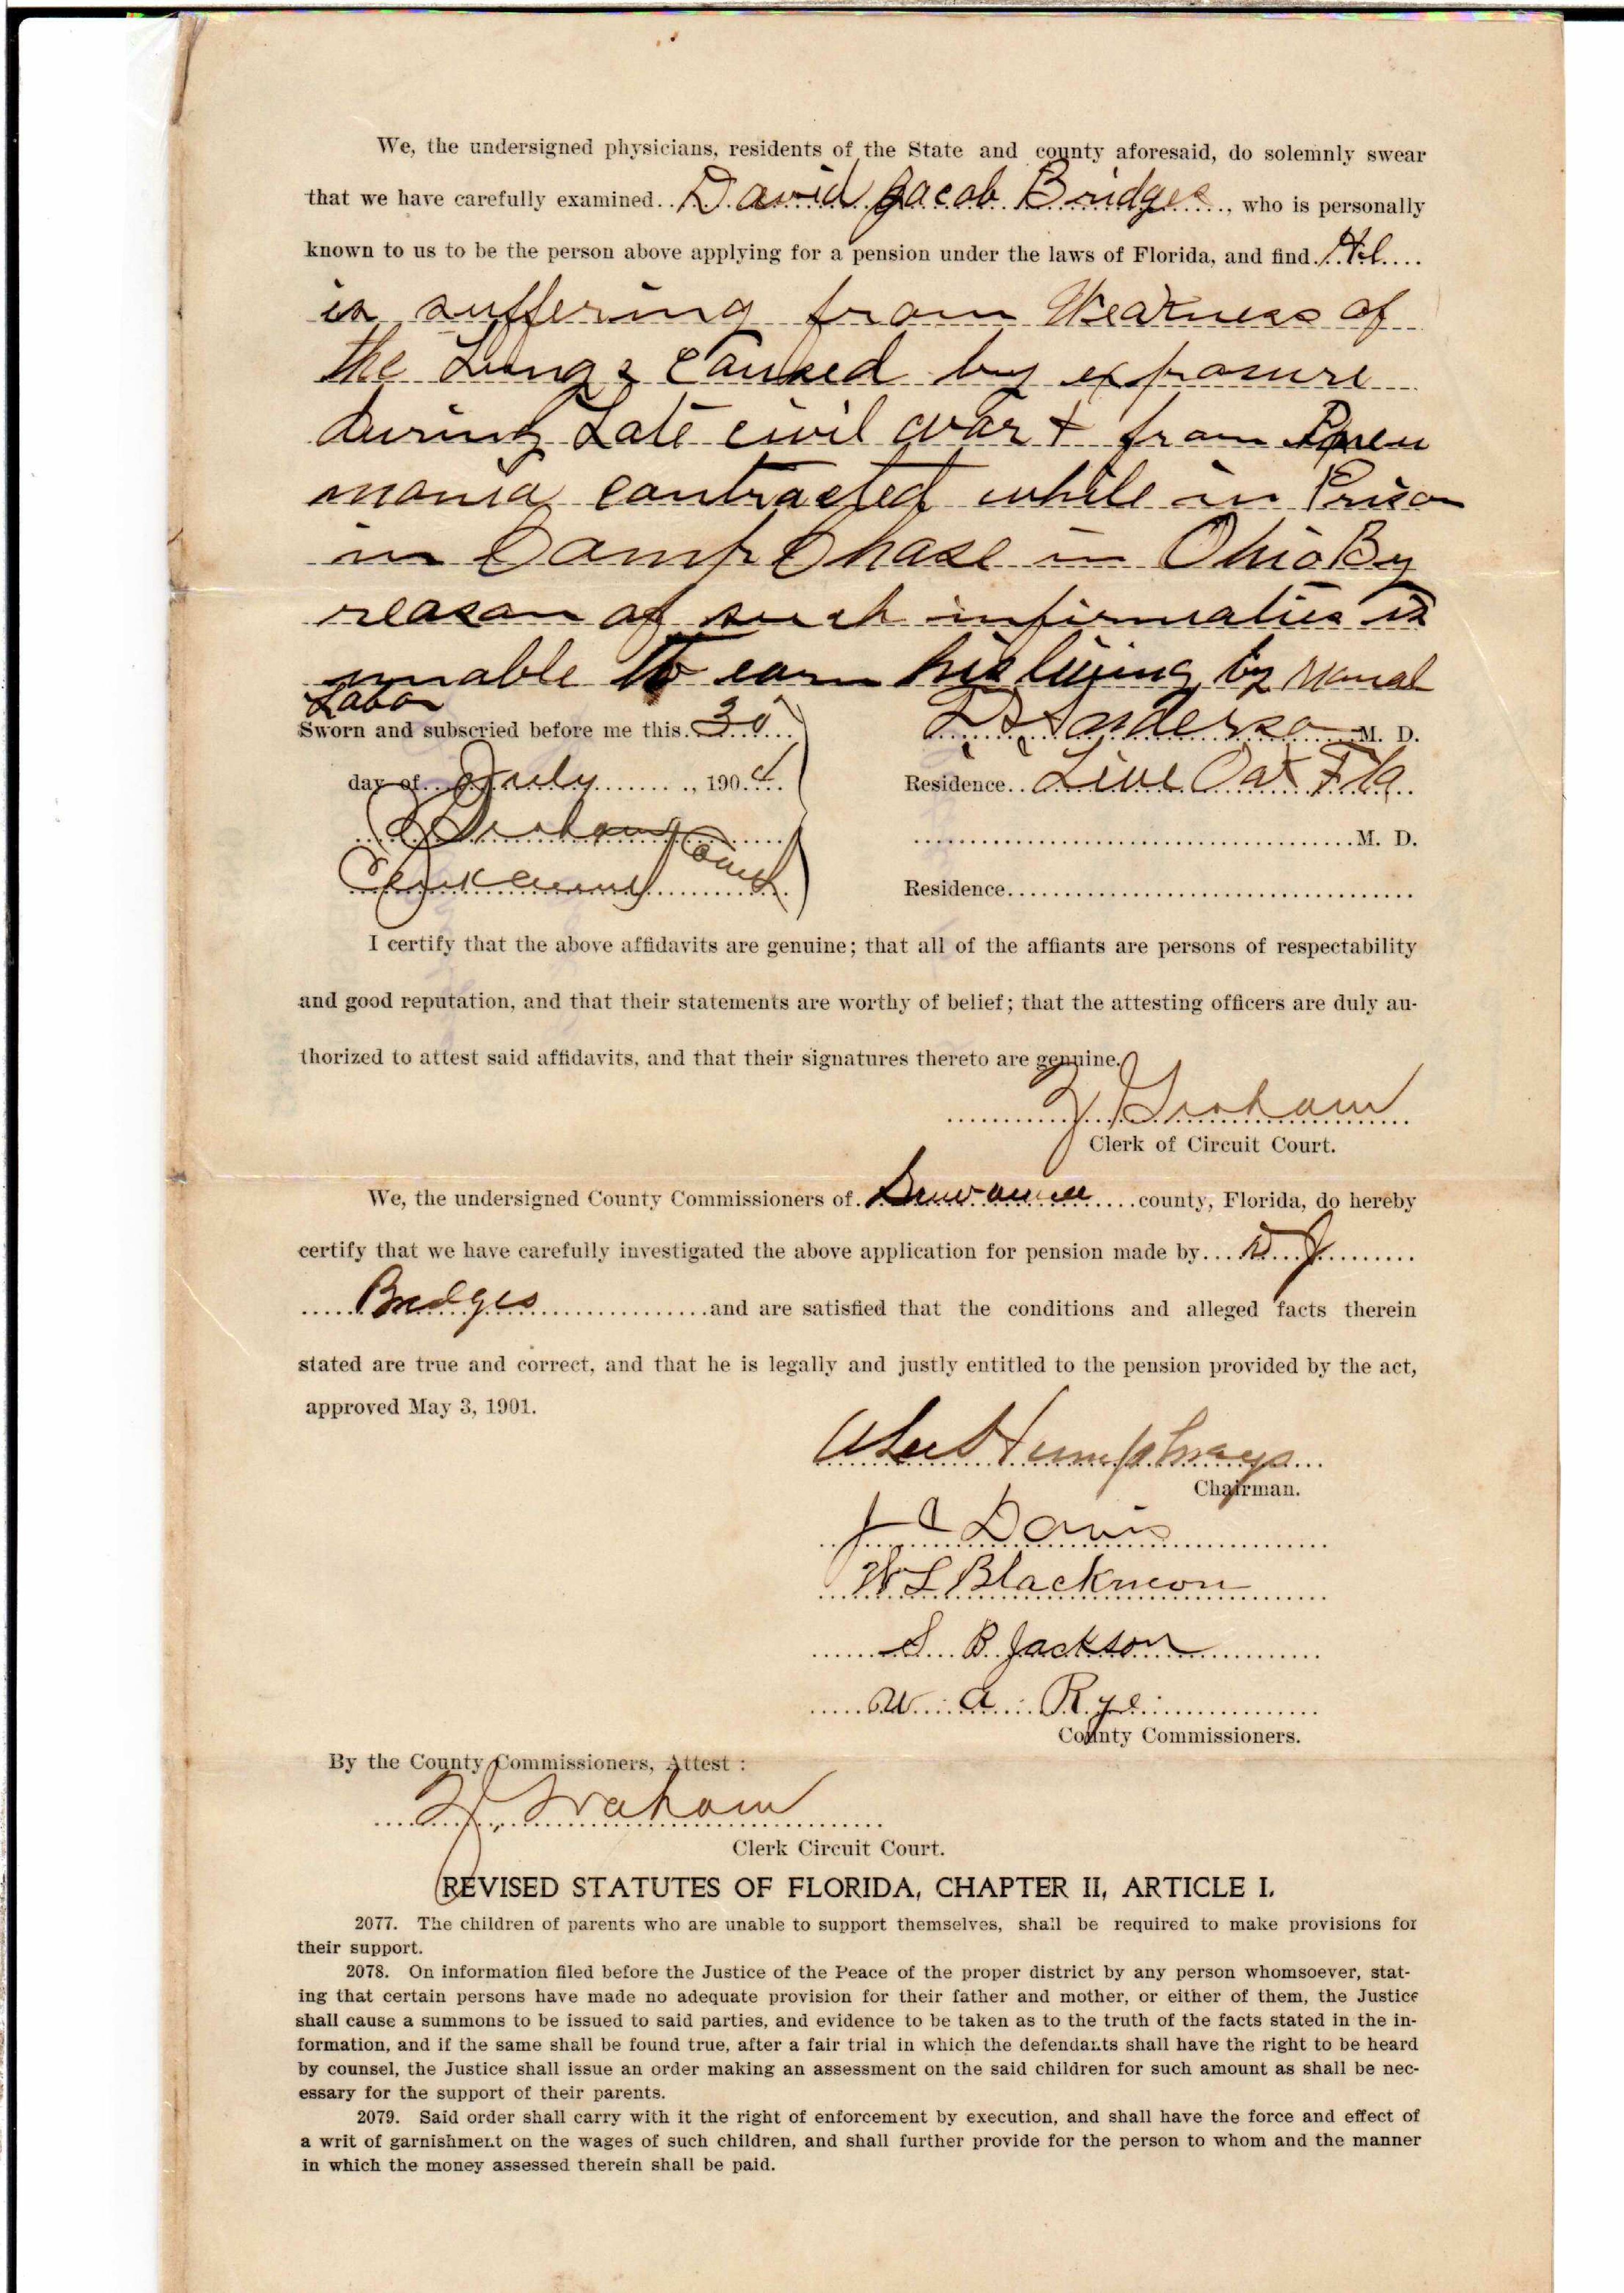 We, the undersigned physicians, residents of the State and county aforesaid, do solemnly swear
that we have carefully examined.. David Jacob Bridges ...., who is personally
known to us to be the person above applying for a pension under the laws of Florida, and find
is suffering from Weakness of
the Lungs Caused by exposure
during Late civil war + from Pneu
monia contracted while in Prison
in Camp Chase in Ohio By
reason of such infirmaties is
unable to earn his living by Manal
Labor
Sworn and subscried before me this. 30
Anderson M. D.
day of July ......, 1904
Residence.. Live Oak Fla
Graham
M. D.
Clerk Circuit Court
Residence
I certify that the above affidavits are genuine; that all of the affiants are persons of respectability
and good reputation, and that their statements are worthy of belief; that the attesting officers are duly au-
thorized to attest said affidavits, and that their signatures thereto are genuine.
J Graham
Clerk of Circuit Court.
We, the undersigned County Commissioners of. Suwannee .... county, Florida, do hereby
certify that we have carefully investigated the above application for pension made by.... D J
Bridges and are satisfied that the conditions and alleged facts therein
stated are true and correct, and that he is legally and justly entitled to the pension provided by the act,
approved May 3, 1901.
A Lee Humphreys
Chairman.
J C Davis
W L Blackmon
S B Jackson
W. A. Rye
County Commissioners.
By the County Commissioners, Attest :
J. Graham
Clerk Circuit Court.
REVISED STATUTES OF FLORIDA, CHAPTER II, ARTICLE I.
2077. The children of parents who are unable to support themselves, shall be required to make provisions for
their support.
2078. On information filed before the Justice of the Peace of the proper district by any person whomsoever, stat-
ing that certain persons have made no adequate provision for their father and mother, or either of them, the Justice
shall cause a summons to be issued to said parties, and evidence to be taken as to the truth of the facts stated in the in-
formation, and if the same shall be found true, after a fair trial in which the defendants shall have the right to be heard
by counsel, the Justice shall issue an order making an assessment on the said children for such amount as shall be nec-
essary for the support of their parents.
2079. Said order shall carry with it the right of enforcement by execution, and shall have the force and effect of
a writ of garnishment on the wages of such children, and shall further provide for the person to whom and the manner
in which the money assessed therein shall be paid.